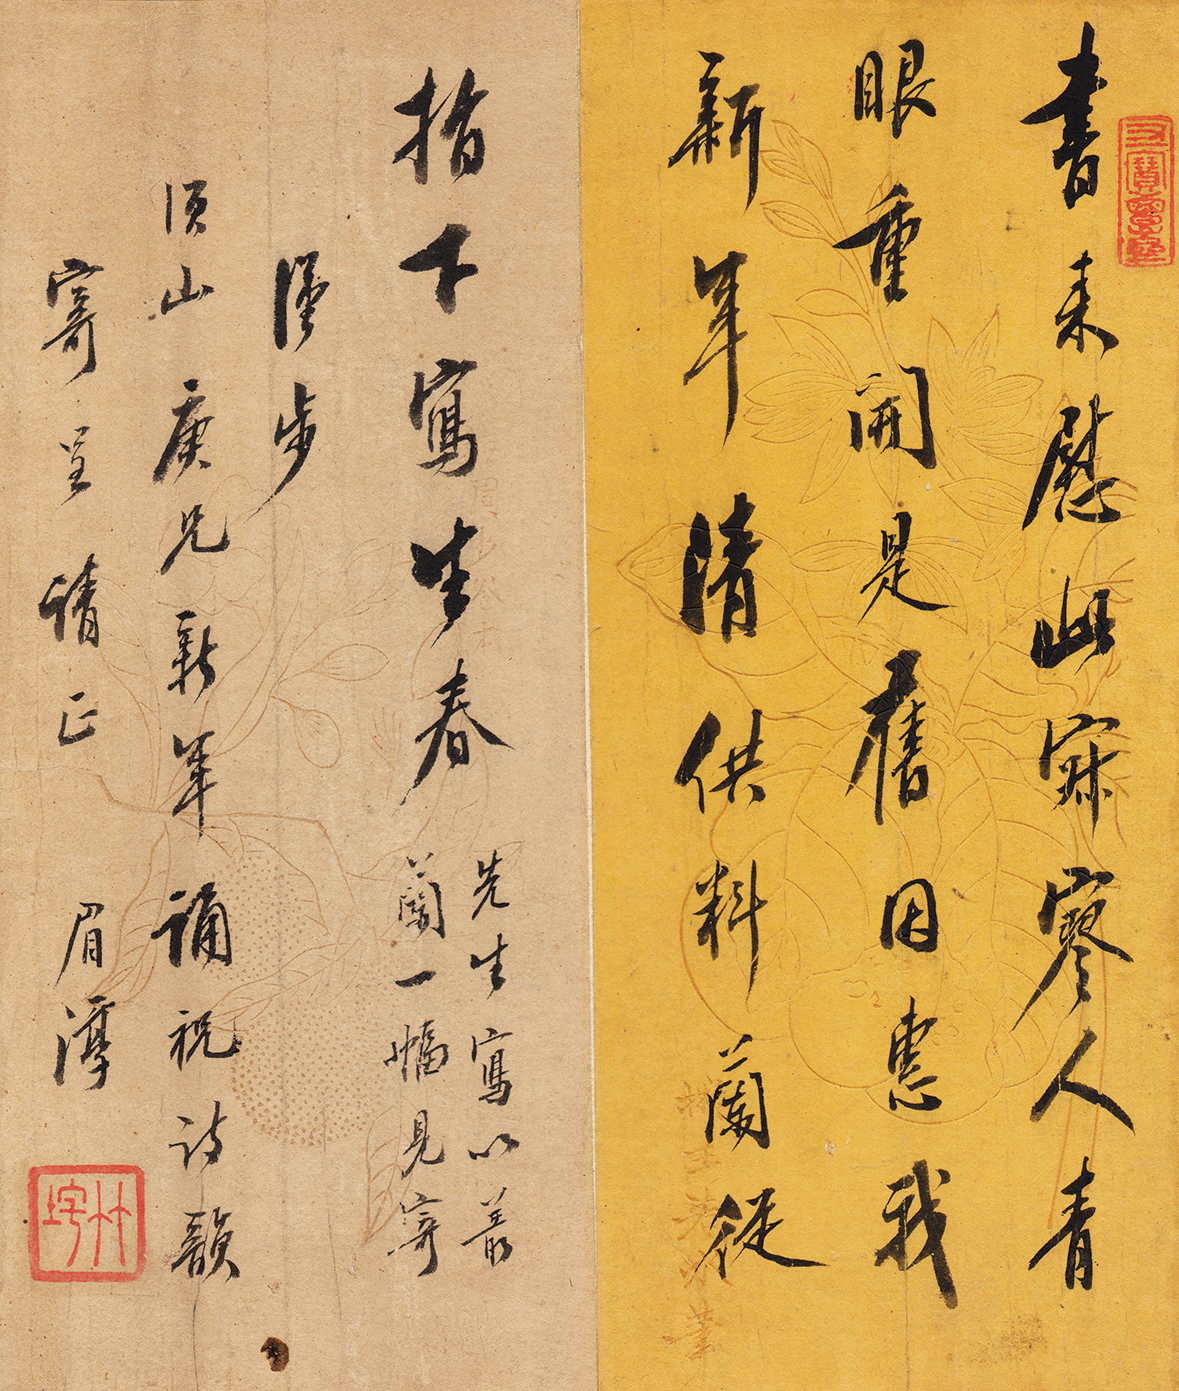 書來慰此寂寥人青
眼重開是舊因惠我
新年清供料蘭從
指下寫生春
先生寫以叢
蘭一幅見寄
謹步
須山庚兄新年誦祝詩韻
寄呈請正 眉